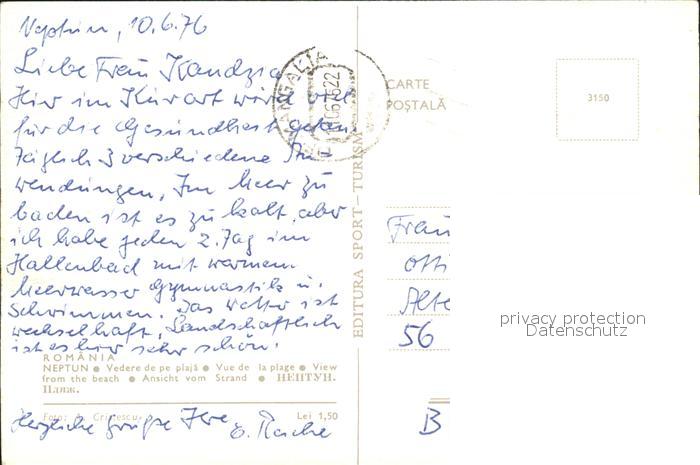 Neptun, 10.6.76
Liebe Frau Kandzia
Hier im Kurort wird viel
für die Gesundheit getan.
Täglich 3 verschiedene An-
wendungen, Im Meer zu
baden ist es zu kalt, aber
ich habe jeden 2. Tag im
Hallenbad mit warmem
Meerwasser Gymnastik u.
Schwimmen. Das Wetter ist
wechselhaft, Landschaftlich
ist es hier sehr schön.
ROMÂNIA
NEPTUN ● Vedere de pe plajă ● Vue de la plage ● View
from the beach ● Ansicht vom Strand ● НЕПТУН.
Пляж.
Foto: A. Cristescu
Lei 1,50
Herzliche Grüße Ihre
E. Rache
EDITURA SPORT-TURISM
MANGALIA
CARTE
POȘTALĂ
3150
Frau
Otti
Alte
56
B
privacy protection
Datenschutz